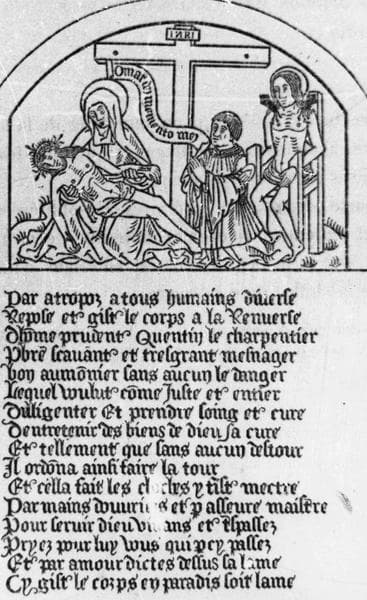 INRI
O mat dei memento mei
Par atropoz a tous humains diverse
Repose et gist le corps a la Renverse
Dhōme prudent Quentin le charpentier
Pbrē scavant et tresgrant mesnager
bon aumōnier sans aucun le danger
Lequel voulut cōme Juste et entier
Dilligenter Et prendre soing et cure
Dentretenir des biens de dieu sa cure
Et tellement que sans aucun destour
Il ordōna ainsi faire la tour
Et cella fait les cloches y fist mectre
Par mains douuriers et p asseure maistre
Pour seruir dieu viuans et trespassez
Pryez pour luy vous qui p cy passez
Et par amour dictes dessus sa lame
Cy gist le corps en paradis soit lame